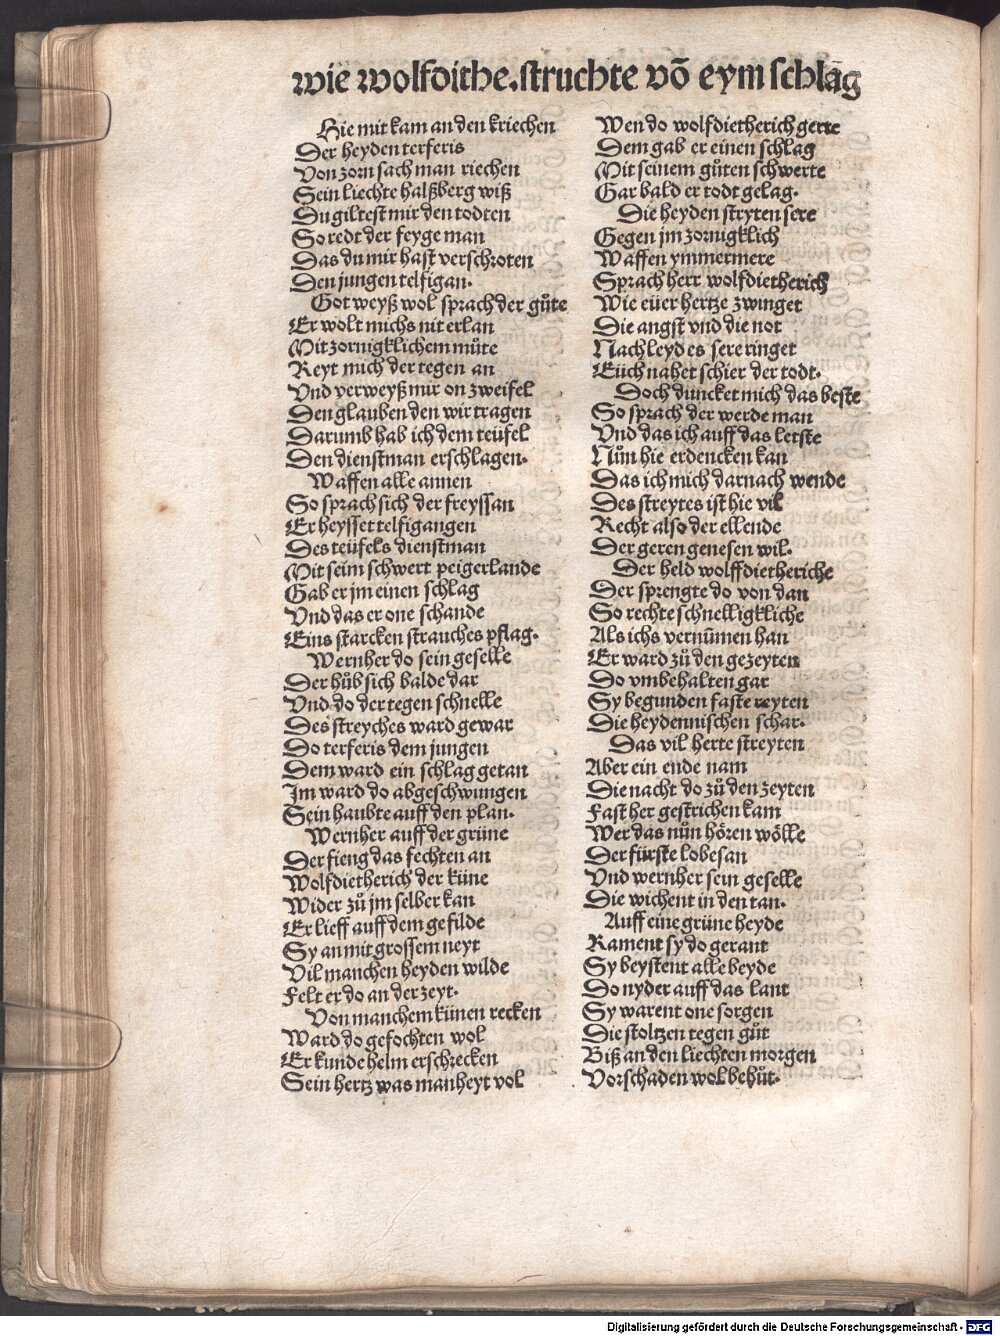 wie wolfdithe. struchte vō eym schlag
Hie mit kam an den kriechen
Der heyden terferis
Von zorn sach man riechen
Sein liechte halßberg wiß
Du giltest mir den todten
So redt der feyge man
Das du mir hast verschroten
Den jungen telfigan.
Got weyß wol sprach der gůte
Er wolt michs nit erlan
Mit zornigklichem můte
Reyt mich der tegen an
Vnd verweyß mir on zweifel
Den glauben den wir tragen
Darumb hab ich dem teüfel
Den dienstman erschlagen.
Waffen alle annen
So sprach sich der freyssan
Er heysset telfigangen
Des teüfels dienstman
Mit seim schwert peigerlande
Gab er jm einen schlag
Vnd das er one schande
Eins starcken strauches pflag.
Wernher do sein geselle
Der hůb sich balde dar
Vnd do der tegen schnelle
Des streyches ward gewar
Do terferis dem jungen
Dem ward ein schlag getan
Im ward do abgeschwungen
Sein haubte auff den plan.
Wernher auff der grüne
Der fieng das fechten an
Wolfdietherich der küne
Wider zů jm selber kan
Er lieff auff dem gefilde
Sy an mit grossem neyt
Vil manchen heyden wilde
Felt er do an der zeyt.
Von manchem künen recken
Ward do gefochten wol
Er kunde helm erschrecken
Sein hertz was manheyt vol
Wen do wolfdietherich gerte
Dem gab er einen schlag
Mit seinem gůten schwerte
Gar bald er todt gelag.
Die heyden stryten sere
Gegen jm zornigklich
Waffen ymmermere
Sprach herr wolfdietherich
Wie eüer hertze zwinget
Die angst vnd die not
Nach leyd es sere ringet
Eüch nahet schier der todt.
Doch duncket mich das beste
So sprach der werde man
Vnd das ich auff das letste
Nůn hie erdencken kan
Das ich mich darnach wende
Des streytes ist hie vil
Recht also der ellende
Der geren genesen wil.
Der held wolffdietheriche
Der sprengte do von dan
So rechte schnelligkliche
Als ichs vernūmen han
Er ward zů den gezeyten
Do vmbehalten gar
Sy begunden faste reyten
Die heydennischen schar.
Das vil herte streyten
Aber ein ende nam
Die nacht do zů den zeyten
Fast her gestrichen kam
Wer das nůn hören wölle
Der fürste lobesan
Vnd wernher sein geselle
Die wichent in den tan.
Auff eine grüne heyde
Rament sy do gerant
Sy beystent alle beyde
Do nyder auff das lant
Sy warent one sorgen
Die stoltzen tegen gůt
Biß an den liechten morgen
Vor schaden wol behůt.
Digitalisierung gefördert durch die Deutsche Forschungsgemeinschaft - DFG